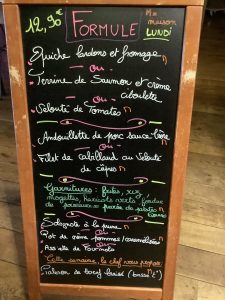 12,90€ FORMULE
maison
LUNDI
Quiche lardons et fromage
ou
Terrine de Saumon et crème
ciboulette
ou
Velouté de Tomates
Andouillette de porc sauce
ou
Filet de cabillaud au Velouté
de cèpes
Garnitures: frites, riz,
mogettes, haricots verts, fondue
de poireaux, purée de
ou
Pot de crème pommes caramélisées
ou
Assiette de fromages
Cette semaine, le chef vous propose
Paleron de boeuf braisé